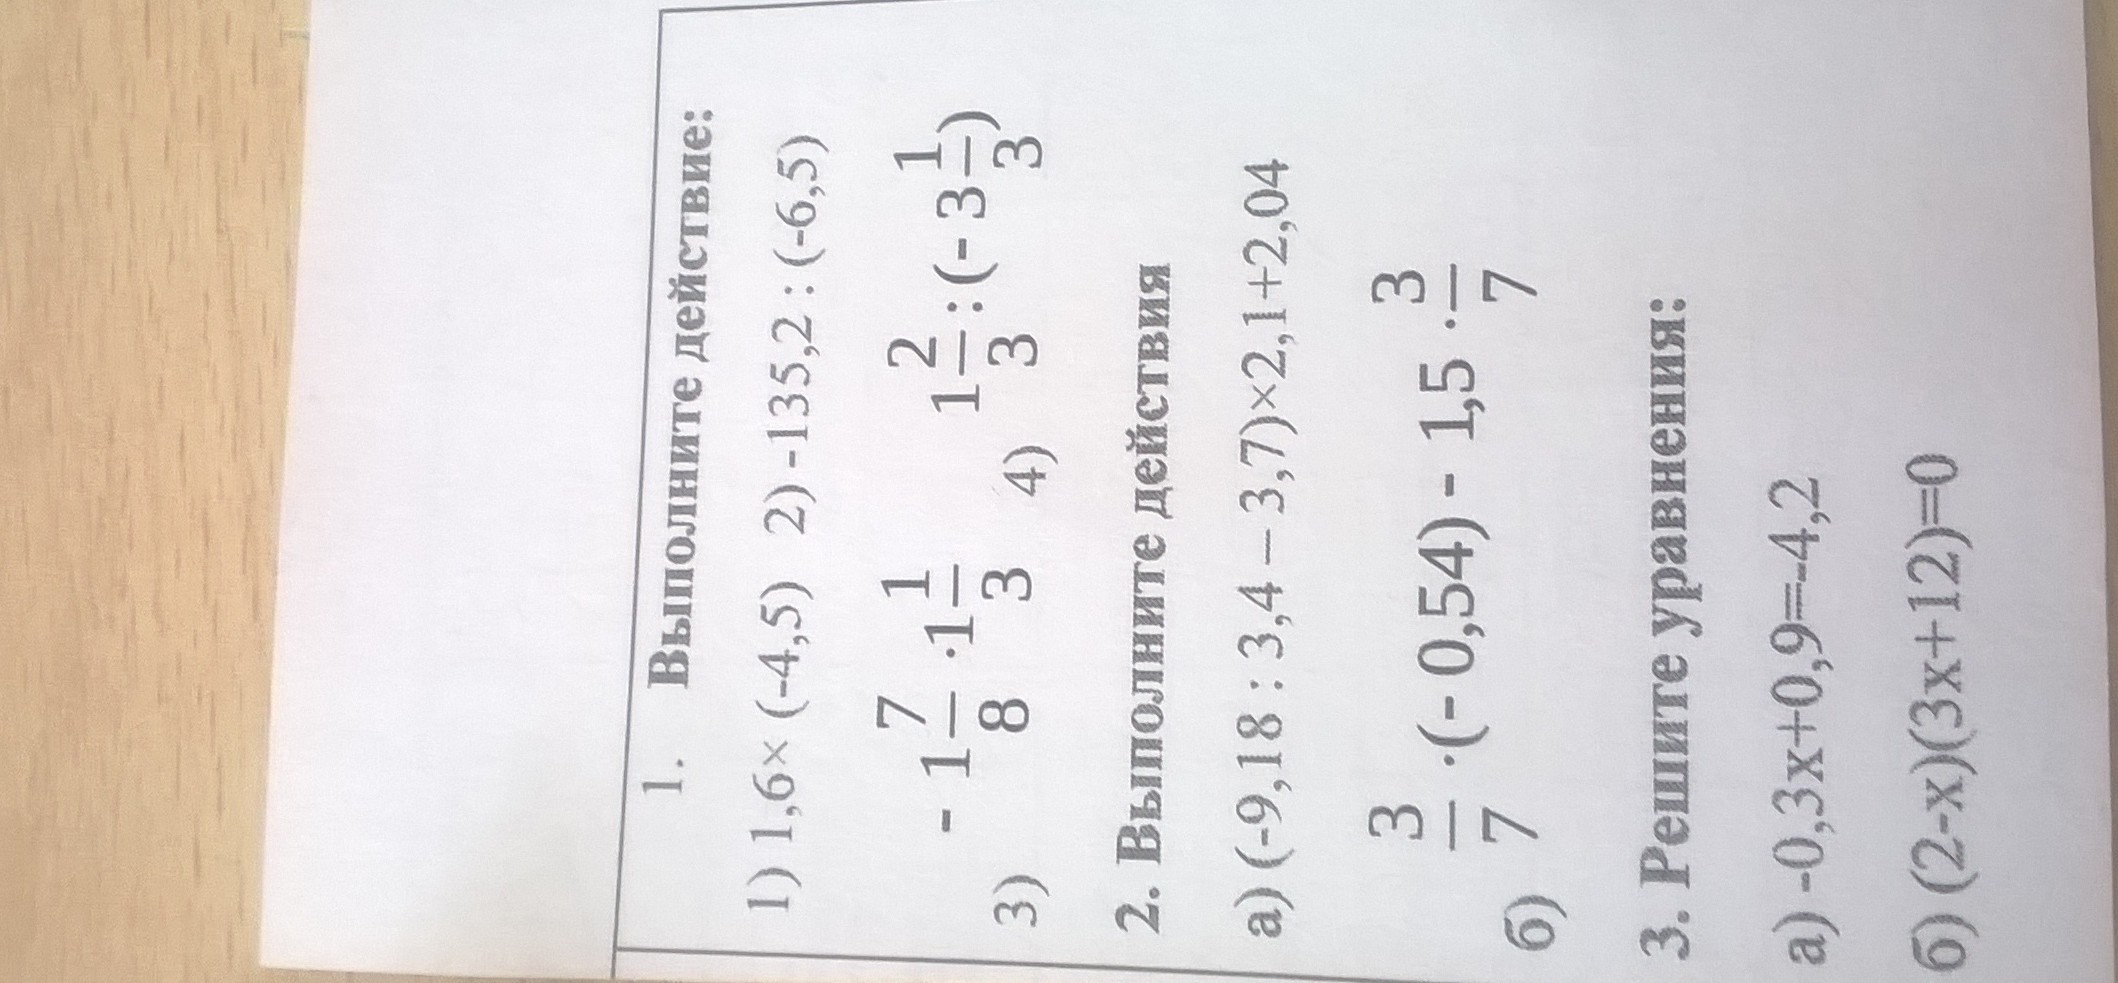 1. Выполните действие:
1) 1,6× (-4,5) 2) -135,2 : (-6,5)
3) - 1 7/8 · 1 1/3 4) 1 2/3 : (- 3 1/3)
2. Выполните действия
а) (-9,18 : 3,4 – 3,7)×2,1+2,04
б) 3/7 · (- 0,54) - 1,5 · 3/7
3. Решите уравнения:
а) -0,3х+0,9=-4,2
б) (2-х)(3х+12)=0